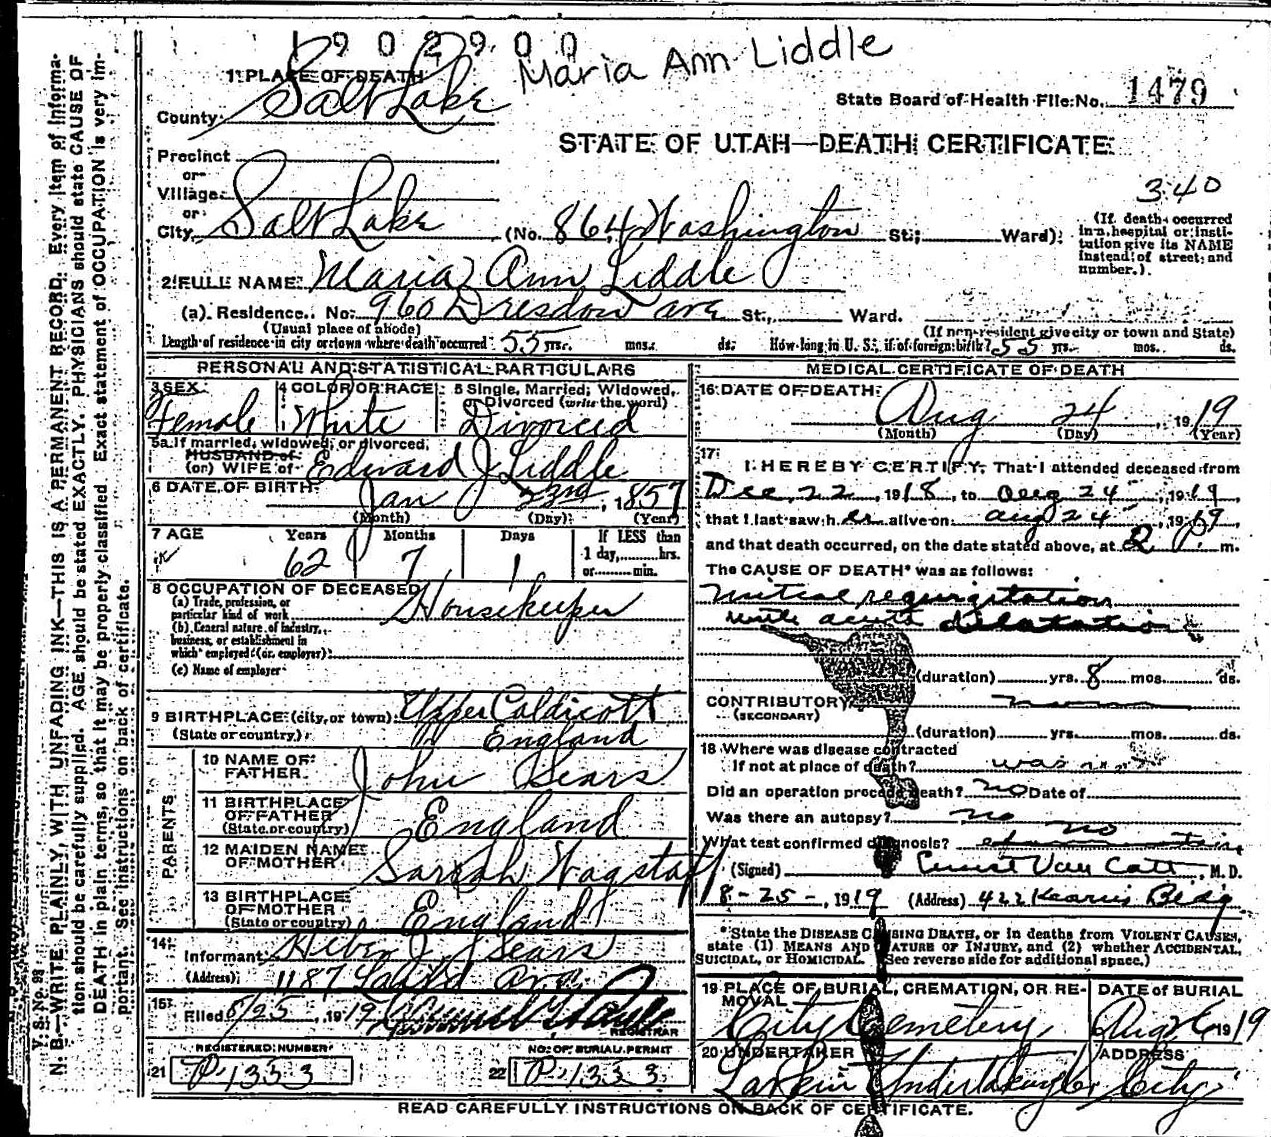 1902900
Maria Ann Liddle
1 PLACE OF DEATH
County Salt Lake
State Board of Health File No. 1479
STATE OF UTAH—DEATH CERTIFICATE
Precinct
or
Village
or
City Salt Lake (No. 864 Washington St; Ward)
340
(If death occurred in a hospital or institution give its NAME instead of street and number.)
2 FULL NAME Maria Ann Liddle
(a) Residence. No. 960 Dresdon Ave St., Ward.
(Usual place of abode) (If non-resident give city or town and State)
Length of residence in city or town where death occurred 55 yrs. mos. ds. How long in U. S., if of foreign birth? 55 yrs. mos. ds.
PERSONAL AND STATISTICAL PARTICULARS
3 SEX Female
4 COLOR OR RACE White
5 Single, Married, Widowed, or Divorced (write the word) Divorced
5a If married, widowed, or divorced,
HUSBAND of
(or) WIFE of Edward J Liddle
6 DATE OF BIRTH Jan 23rd, 1857
(Month) (Day) (Year)
7 AGE Years Months Days If LESS than
62 7 1 1 day, hrs.
or min.
8 OCCUPATION OF DECEASED
(a) Trade, profession, or
particular kind of work Housekeeper
(b) General nature of industry,
business, or establishment in
which employed (or employer)
(c) Name of employer
9 BIRTHPLACE (city, or town) Upper Caldicott
(State or country) England
PARENTS
10 NAME OF FATHER John Sears
11 BIRTHPLACE OF FATHER (State or country) England
12 MAIDEN NAME OF MOTHER Sarah Wagstaff
13 BIRTHPLACE OF MOTHER (State or country) England
14 Informant Heber J Sears
(Address) 1187
15 Filed 8/25, 1919
REGISTRAR
REGISTERED NUMBER NO. OF BURIAL PERMIT
21 P1333 22 P1333
MEDICAL CERTIFICATE OF DEATH
16 DATE OF DEATH
Aug 24, 1919
(Month) (Day) (Year)
17 I HEREBY CERTIFY, That I attended deceased from
Dec, 22, 1918, to Aug 24, 1919
that I last saw her alive on Aug 24, 1919,
and that death occurred, on the date stated above, at 2 P. m.
The CAUSE OF DEATH* was as follows:
mitral regurgitation
with acute dilatation
(duration) yrs. 8 mos. ds.
CONTRIBUTORY
(SECONDARY)
(duration) yrs. mos. ds.
18 Where was disease contracted
If not at place of death? was not
Did an operation precede death? no Date of
Was there an autopsy? no
no
What test confirmed diagnosis? examination
(Signed) Van Cott, M. D.
8-25-, 1919 (Address) 422 Kearns Bldg
*State the DISEASE CAUSING DEATH, or in deaths from VIOLENT CAUSES,
state (1) MEANS AND NATURE OF INJURY, and (2) whether ACCIDENTAL,
SUICIDAL, or HOMICIDAL. (See reverse side for additional space.)
19 PLACE OF BURIAL, CREMATION, OR REMOVAL City Cemetery
DATE of BURIAL Aug 26 1919
20 UNDERTAKER Larkin Undertaking Co
ADDRESS City
READ CAREFULLY INSTRUCTIONS ON BACK OF CERTIFICATE.
V. S. No. 98
N. B.—WRITE PLAINLY, WITH UNFADING INK—THIS IS A PERMANENT RECORD. Every item of information should be carefully supplied. AGE should be stated EXACTLY. PHYSICIANS should state CAUSE OF DEATH in plain terms, so that it may be properly classified. Exact statement of OCCUPATION is very important. See instructions on back of certificate.